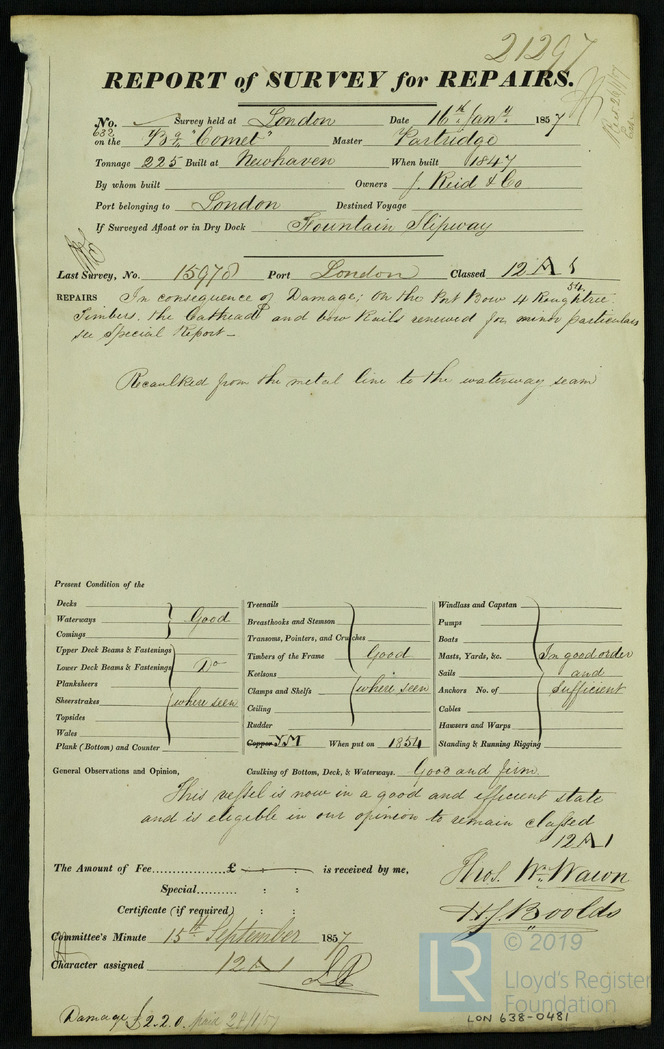 21297
REPORT of SURVEY for REPAIRS.
No. Survey held at London Date 16th Jany. 1857
632
on the Bq. "Comet" Master Partridge
Tonnage 225 Built at Newhaven When built 1847
By whom built Owners J. Reid & Co
Port belonging to London Destined Voyage
If Surveyed Afloat or in Dry Dock Fountain Slipway
Last Survey, No. 15978 Port London Classed 12 A 1
54.
REPAIRS In consequence of Damage; On the Port Bow 4 Roughtree
Timbers, the Cathead and bow Rails renewed for minor particulars
see Special Report_
Recaulked from the metal line to the waterway seam
Present Condition of the
Decks
Waterways Good
Comings
Upper Deck Beams & Fastenings
Lower Deck Beams & Fastenings Do
Planksheers
Sheerstrakes where seen
Topsides
Wales
Plank (Bottom) and Counter
Treenails
Breasthooks and Stemson
Transoms, Pointers, and Crutches
Timbers of the Frame Good
Keelsons
Clamps and Shelfs where seen
Ceiling
Rudder
Copper Y.M When put on 1854
Windlass and Capstan
Pumps
Boats
Masts, Yards, &c. In good order
Sails and
Anchors No. of Sufficient
Cables
Hawsers and Warps
Standing & Running Rigging
General Observations and Opinion, Caulking of Bottom, Deck, & Waterways. Good and firm
This vessel is now in a good and efficient state
and is eligible in our opinion to remain classed
12 A 1
The Amount of Fee......... £ is received by me,
Special.......... : :
Certificate (if required) : :
Thos. Wm. Wawn
H J Boolds
Committee's Minute 15th September 1857
Character assigned 12 A 1
Damage £2.2.0. Paid 24/1/57
LR © 2019
Lloyd's Register
Foundation
LON 638-0481